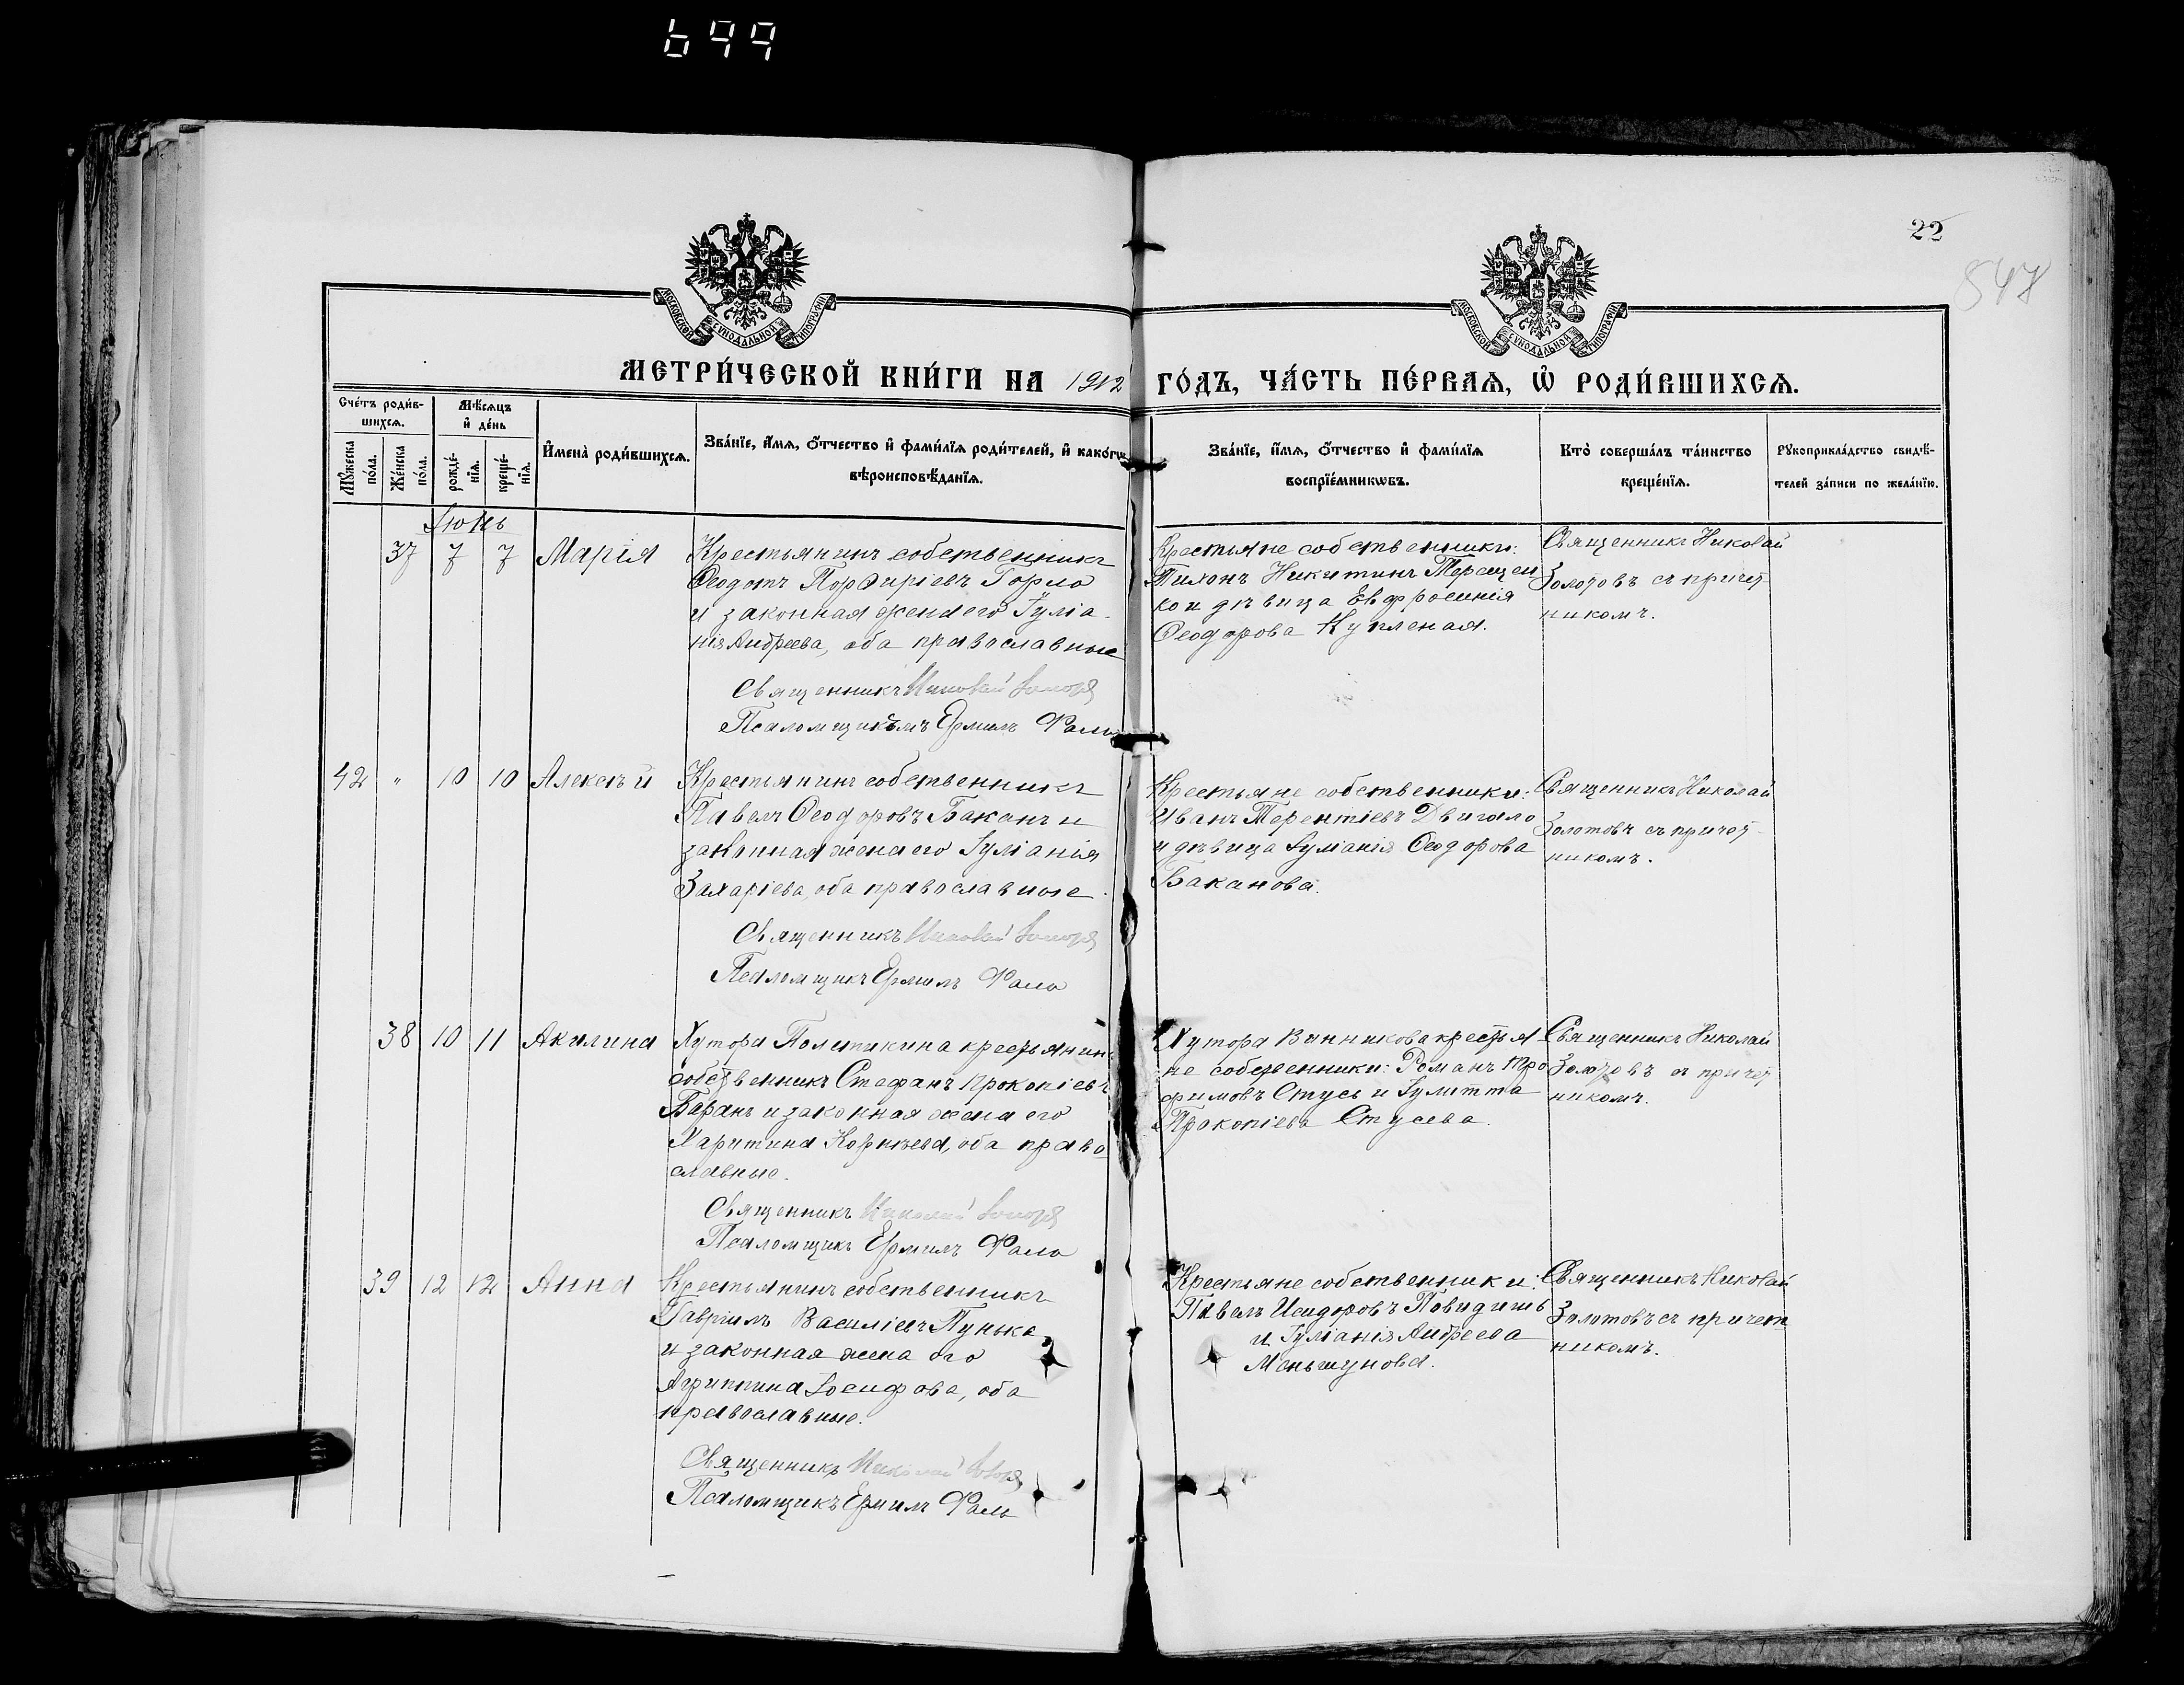 699
22
548
МОСКОВСКОЙ СѴНОДАЛЬНОЙ ТИПОГРАФІИ
МОСКОВСКОЙ СѴНОДАЛЬНОЙ ТИПОГРАФІИ
МЕТРИ́ЧЕСКОЙ КНИ́ГИ НА 1912 ГО́ДЪ, ЧА́СТЬ ПЕ́РВАѦ, Ѽ РОДИ́ВШИХСѦ.
Сче́тъ роди́в-
шихсѧ.
Мꙋ́жеска
по́ла.
Же́нска
по́ла.
Мѣ́сѧцъ
и҆ де́нь
рожде́-
нїѧ.
креще́-
нїѧ.
И҆мена̀ роди́вшихсѧ.
Зва́нїе, и҆́мѧ, ѻ҆́тчество и҆ фами́лїѧ роди́телей, и҆ како́гѡ
вѣроисповѣ́данїѧ.
Зва́нїе, и҆́мѧ, ѻ҆́тчество и҆ фами́лїѧ
воспрїе́мникѡвъ.
Кто̀ соверша́лъ та́инство
креще́нїѧ.
Рꙋкоприкла́дство свидѣ́-
телей за́писи по жела́нїю.
Іюнь
37 7 7 Марія
Крестьянинъ собственникъ
Ѳеодотъ Порфиріевъ Горло
и законная жена его Іуліа-
нія Андреева, оба православные
Священникъ Николай Золотовъ
Псаломщикъ Ермилъ
Крестьяне собственники:
Тихонъ Никитинъ Терещен
ко и дѣвица Евфросинія
Ѳеодорова Купленая.
Священникъ Николай
Золотовъ съ причет
никомъ.
42 " 10 10 Алексѣй
Крестьянинъ собственникъ
Павелъ Ѳеодоровъ Баканъ и
законная жена его Іуліанія
Захаріева, оба православные.
Священникъ Николай Золотовъ
Псаломщикъ Ермилъ
Крестьяне собственники:
Иванъ Терентіевъ Двигало
и дѣвица Іуліанія Ѳеодорова
Баканова.
Священникъ Николай
Золотовъ съ причет-
никомъ.
38 10 11 Акилина
Хутора крестьянинъ
собственникъ Стефанъ Прокопіевъ
Баранъ и законная жена его
Харитина Корнѣева, оба право
славные.
Священникъ Николай Золотовъ
Псаломщикъ Ермилъ
Хутора Винникова крестья-
не собственники: Романъ Тро
фимовъ Стусь и Іулитта
Прокопіева Стусева.
Священникъ Николай
Золотовъ съ причет
никомъ.
39 12 12 Анна
Крестьянинъ собственникъ
Гавріилъ Василіевъ Пунька
и законная жена его
Агриппина Іосифова, оба
православные.
Священникъ Николай Золотовъ
Псаломщикъ Ермилъ
Крестьяне собственники:
Павелъ Исидоровъ Повидишь
и Іуліанія Андреева
Меньшунова.
Священникъ Николай
Золотовъ съ причет
никомъ.